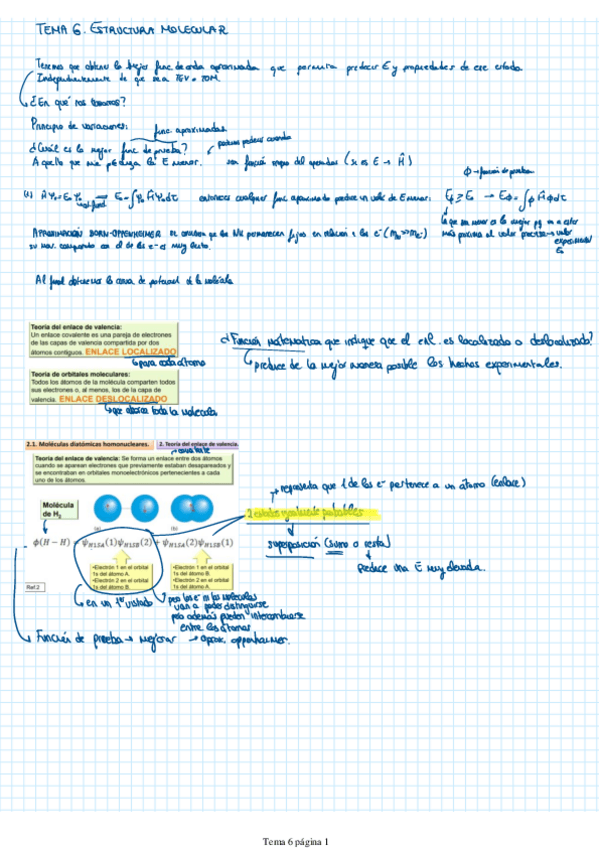 TEMA 6. ESTRUCTURA MOLECULAR
Tenemos que obtener la mejor func. de onda aproximada que permita predecir E y propiedades de ese estado.
Independientemente de que sea TEV o TOM.
¿En qué nos basamos?
Principio de variaciones:
func. aproximadas
¿Cuál es la mejor func. de prueba?
Aquella que me produzca la E menor.
son función propia del operador (si es E → Ĥ)
φ → función de prueba
entonces cualquier func. aproximada produce un valor de E mayor:
APROXIMACIÓN BORN-OPPENHEIMER
su mov. comparado con el de los e- es muy lento.
Al final obtenemos la curva de potencial de la molécula
Teoría del enlace de valencia:
Un enlace covalente es una pareja de electrones
de las capas de valencia compartida por dos
átomos contiguos. ENLACE LOCALIZADO
para cada átomo
Teoría de orbitales moleculares:
Todos los átomos de la molécula comparten todos
sus electrones o, al menos, los de la capa de
valencia. ENLACE DESLOCALIZADO
que abarca toda la molécula
¿Función matemática que indique que el enl. es localizado o deslocalizado?
produce de la mejor manera posible los hechos experimentales.
2.1. Moléculas diatómicas homonucleares.
2. Teoría del enlace de valencia.
Teoría del enlace de valencia: Se forma un enlace entre dos átomos
cuando se aparean electrones que previamente estaban desapareados y
se encontraban en orbitales monoelectrónicos pertenecientes a cada
uno de los átomos.
Molécula
de H2
(a)
(b)
ϕ(H − H) = ψH1SA(1)ψH1SB(2) + ψH1SA(2)ψH1SB(1)
•Electrón 1 en el orbital
1s del átomo A.
•Electrón 2 en el orbital
1s del átomo B.
•Electrón 2 en el orbital
1s del átomo A.
•Electrón 1 en el orbital
1s del átomo B.
Ref.2
representa que 1 de los e- pertenece a un átomo (enlace)
2 estados igualmente probables
superposición (suma o resta)
Produce una E muy elevada.
en un 1er estado
pero los e- en las moléculas
van a poder distinguirse
pero además pueden intercambiarse
entre los átomos
Función de prueba → mejorar → aprox. oppenheimer.
Tema 6 página 1